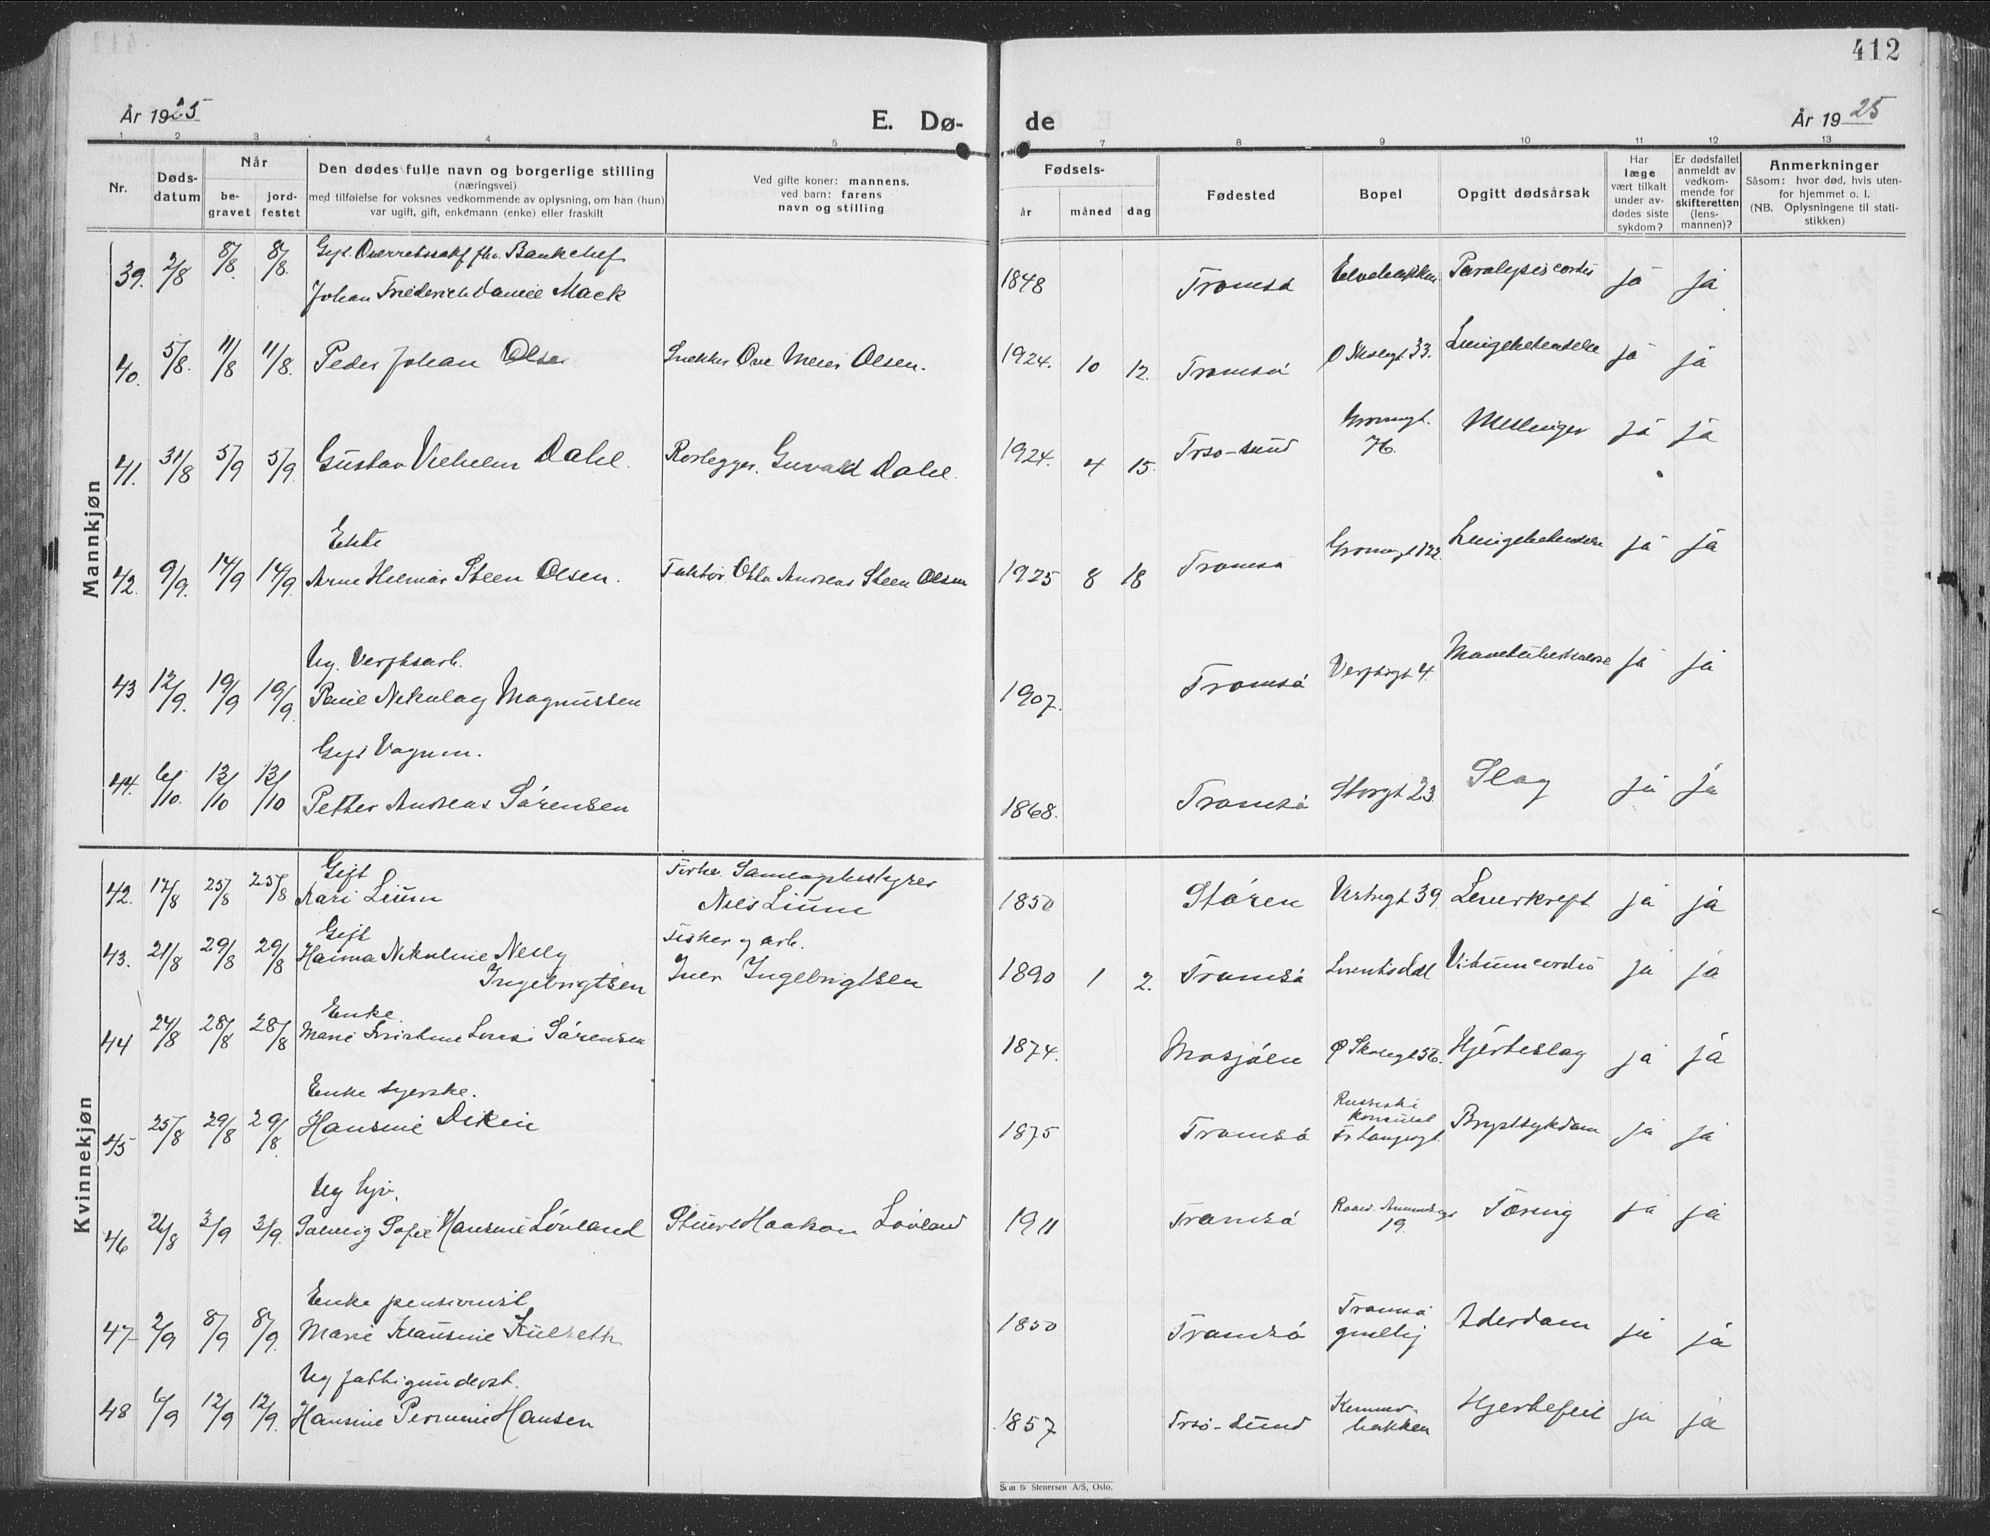 412
År 1925
E. Dø-
de
År 1925
1 2 3 4 5 7 8 9 10 11 12 13
Nr.
Døds-
datum
Når
be-
gravet
jord-
festet
Den dødes fulle navn og borgerlige stilling
(næringsvei)
med tilføielse for voksnes vedkommende av oplysning, om han (hun)
var ugift, gift, enkemann (enke) eller fraskilt
Ved gifte koner: mannens,
ved barn: farens
navn og stilling
Fødsels-
år måned dag
Fødested
Bopel
Opgitt dødsårsak
Har
læge
vært tilkalt
under av-
dødes siste
sykdom?
Er dødsfallet
anmeldt av
vedkom-
mende for
skifteretten
(lens-
mannen)?
Anmerkninger
Såsom: hvor død, hvis uten-
for hjemmet o. l.
(NB. Oplysningene til stati-
stikken)
Mannkjøn
39. 2/8 8/8. 8/8. Gift Overretssakf. fhv. Bankchef
Johan Friederich Daniel Mack 1848 Tromsø Elvebakken Paralysis cordis ja ja
40. 5/8. 11/8 11/8. Peder Johan Olsen Snekker Ove Meier Olsen. 1924. 10 12. Tromsø Ø Skolegt 33. Lungebetendelse ja ja
41. 31/8 5/9 5/9. Gustav Vilhelm Dahl. Rørlegger. Dahl. 1924. 4 15. Trsø-sund Grønnegt.
76. ja ja
42. 9/9. 14/9 14/9. Ekte
Arne Hilmar Steen Olsen. Faktor Otto Andreas Steen Olsen 1925 8 18 Tromsø Grønnegt 122 Lungebetendelse ja ja
43 12/9. 19/9 19/9. Ug. Verftsarb.
Paul Nikolay Magnussen 1907. Tromsø Verftsgt 4. ja ja
44. 6/10. 13/10 13/10 Gift Vognm.
Petter Andreas Sørensen 1868. Tromsø Storgt 23. Slag ja ja
Kvinnekjøn
42. 17/8 25/8 25/8 Gift
Kari Lium Forhv. Samlagsbestyrer
Nils Lium 1850 Støren Vestregt 39. Leverkreft ja ja
43. 21/8 29/8 29/8 Gift
Hanna Nikoline Nelly
Ingebrigtsen Fisker og arb.
Iver Ingebrigtsen 1890 1 2. Tromsø Vitium cordis ja ja
44 24/8 28/8 28/8 Enke
Marie Kristine Lovise Sørensen 1874. Mosjøen Ø Skolegt 56. Hjerteslag ja ja
45 25/8 29/8 29/8. Enke syerske.
Hansine Dikin 1875 Tromsø Russiske
konsulat
Fr Langesgt Brystsykdom ja ja
46 26/8 3/9 3/9. Ug syv.
Solveig Sofie Hansine Løvland Stuert Haakon Løvland 1911 Tromsø Roald Amundsgt
19. Tæring ja ja
47 2/9 8/9 8/9. Enke pensionist
Marie Klausine Kulseth 1850 Tromsø
gmlhj Alderdom ja ja
48 6/9 12/9 12/9. Ug fattigunderst.
Hansine Pernunie Hansen 1857 Trsø-sund bakken Hjertefeil ja ja
Sem & Stenersen A/S, Oslo.